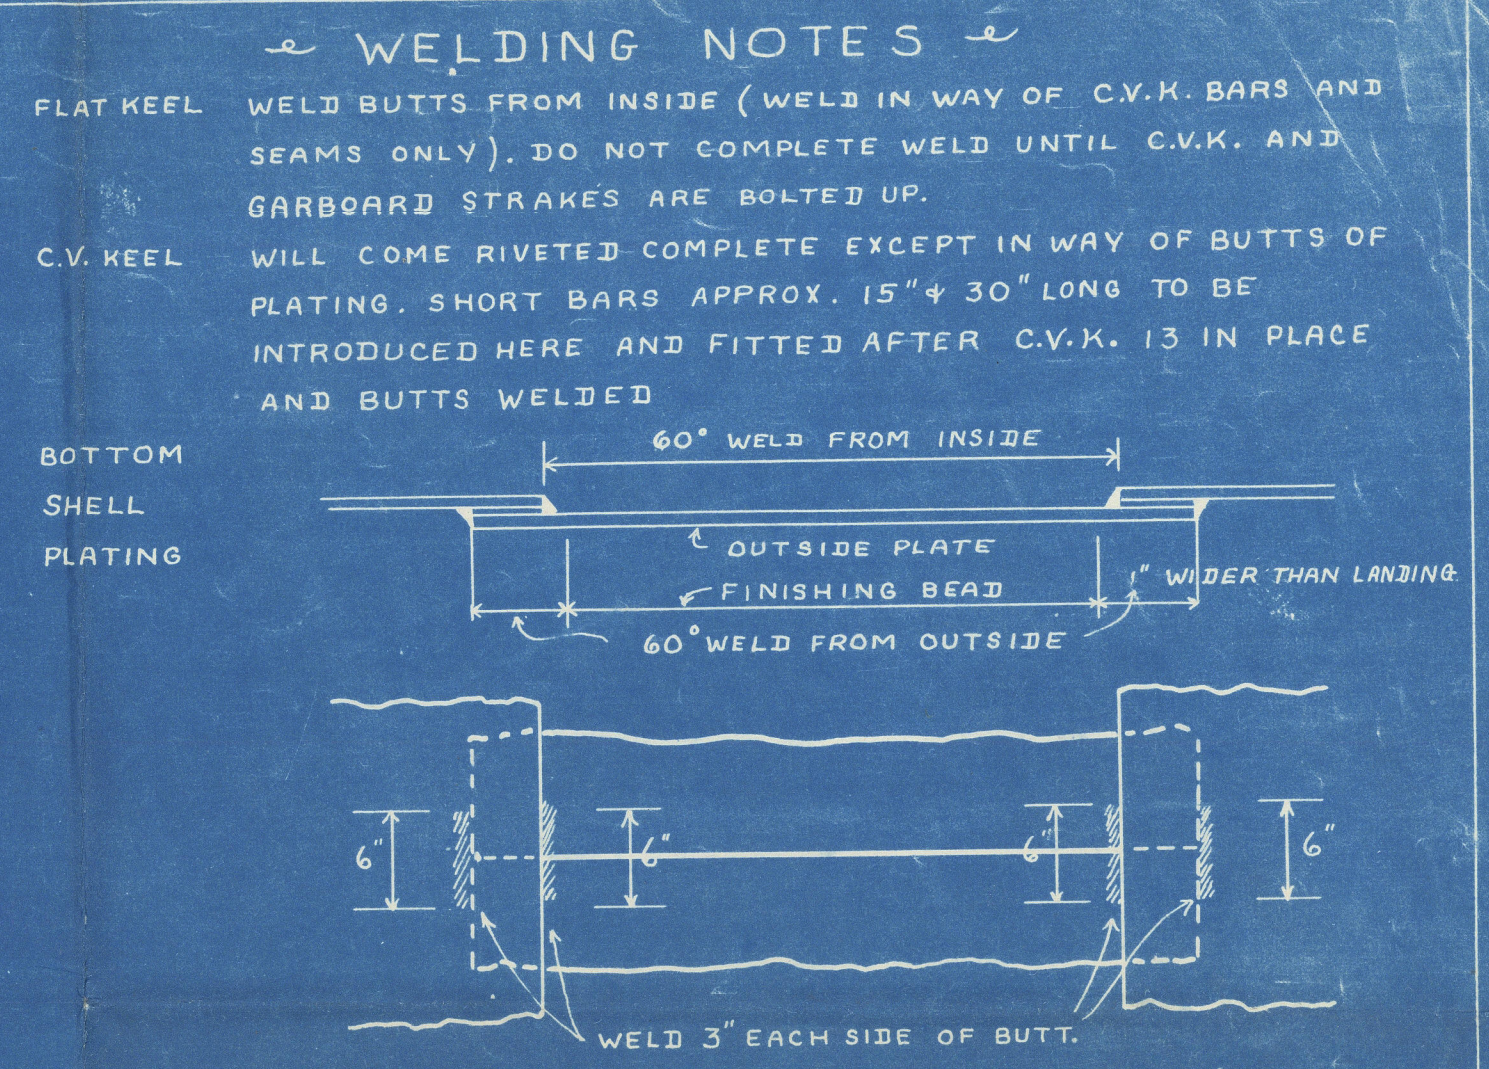 WELDING NOTES
FLAT KEEL WELD BUTTS FROM INSIDE (WELD IN WAY OF C.V.K. BARS AND
SEAMS ONLY). DO NOT COMPLETE WELD UNTIL C.V.K. AND
GARBOARD STRAKES ARE BOLTED UP.
C.V. KEEL WILL COME RIVETED COMPLETE EXCEPT IN WAY OF BUTTS OF
PLATING. SHORT BARS APPROX. 15" & 30" LONG TO BE
INTRODUCED HERE AND FITTED AFTER C.V.K. 13 IN PLACE
AND BUTTS WELDED
BOTTOM
SHELL
PLATING
60° WELD FROM INSIDE
OUTSIDE PLATE
FINISHING BEAD
1" WIDER THAN LANDING
60° WELD FROM OUTSIDE
6" 6" 6" 6"
WELD 3" EACH SIDE OF BUTT.